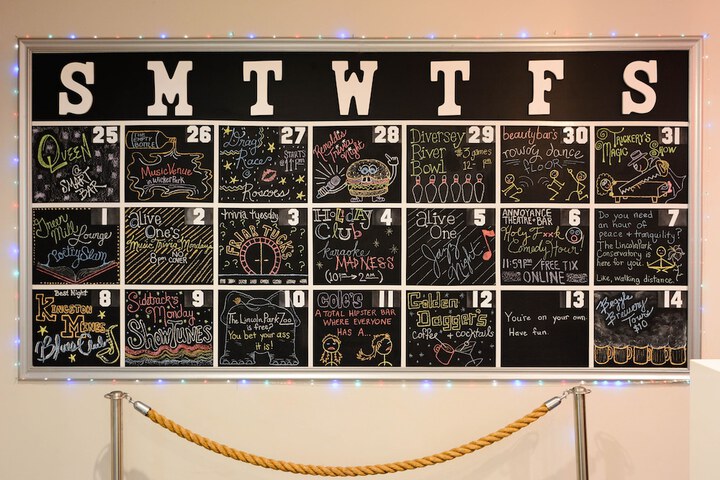 S M T W T F S
25
Queen!
@
SMART
BAR
26
THE
EMPTY
BOTTLE
Music Venue
in Wicker Park
27
Drag
Race
STARTS
@
Roscoes
28
Trivia
Night
29
Diversey
River
Bowl
$3 games
12
30
beautybar's
rowdy dance
FLOOR
31
TRICKERY'S
MAGIC SHOW
1
Green Mill
Lounge
Poetry Slam
2
alive
One's
Music Trivia Mondays
NO
COVER
3
Trivia Tuesday
FRIAR TUCK'S
4
HOLIDAY
Club
Karaoke
MADNESS
(10PM → 2AM)
5
alive
One
Jazz
Night
6
ANNOYANCE
THEATRE-BAR
Holy F*xxk
Comedy Hour
11:59PM
FREE TIX
ONLINE
7
Do you need
an hour of
peace + tranquility?
The Lincoln Park
Conservatory is
here for you
Like, walking distance.
8
Best Night
KINGSTON
MINES
Blues Club
9
Sidetrack's
Monday
SHOWTUNES
10
The Lincoln Park Zoo
is free?
You bet your ass
it is!
11
Cole's
A TOTAL HIPSTER BAR
WHERE EVERYONE
HAS A...
12
Golden
Dagger's
coffee + cocktails
13
You're on your own.
Have fun.
14
Begyle
Brewery
Tours
$10